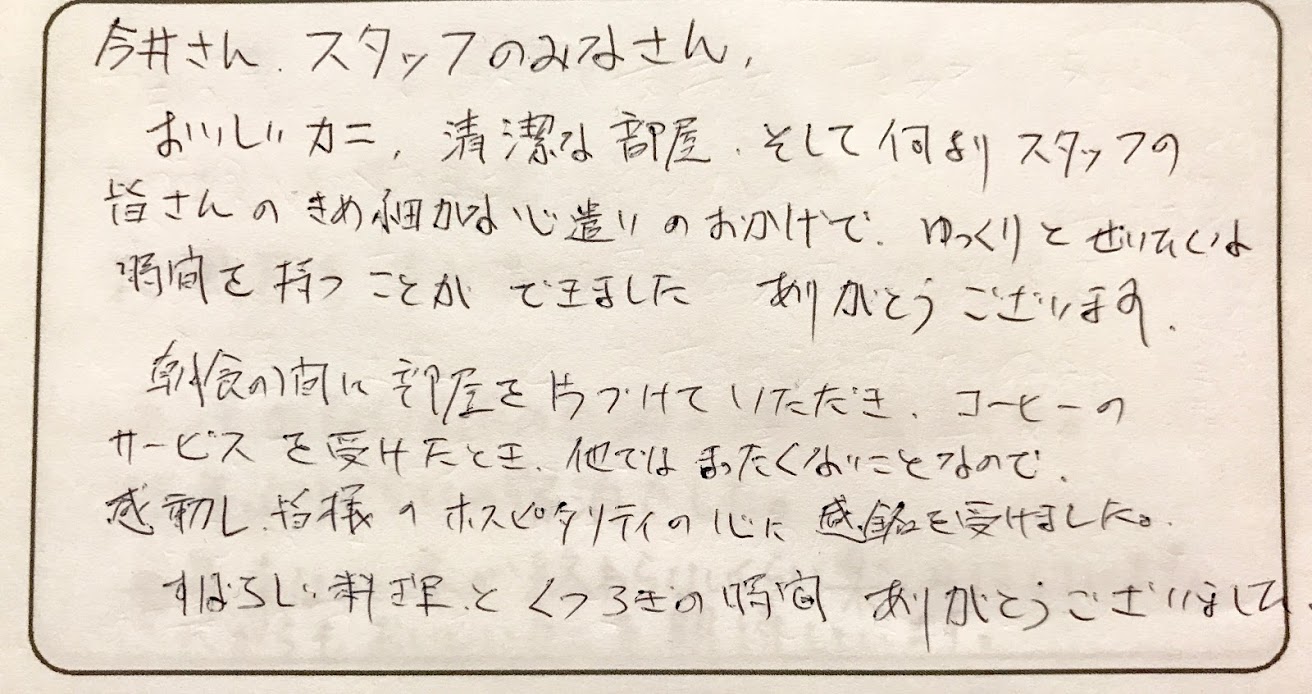 今井さん、スタッフのみなさん、
おいしいカニ、清潔な部屋、そして何よりスタッフの
皆さんのきめ細かな心遣いのおかげで、ゆっくりとぜいたくな
時間を持つことができました ありがとうございます。
朝食の間に部屋を片づけていただき、コーヒーの
サービスを受けたとき、他ではまったくないことなので、
感動し、皆様のホスピタリティの心に感銘を受けました。
すばらしい料理とくつろぎの時間 ありがとうございました。